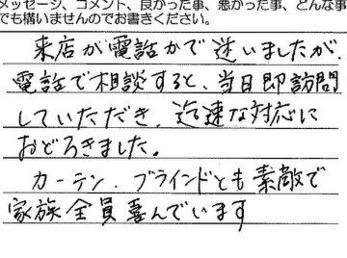 メッセージ、コメント、良かった事、悪かった事、どんな事
でも構いませんのでお書きください。
来店が電話かで迷いましたが、
電話で相談すると、当日即訪問
していただき、迅速な対応に
おどろきました。
カーテン、ブラインドとも素敵で
家族全員喜んでいます